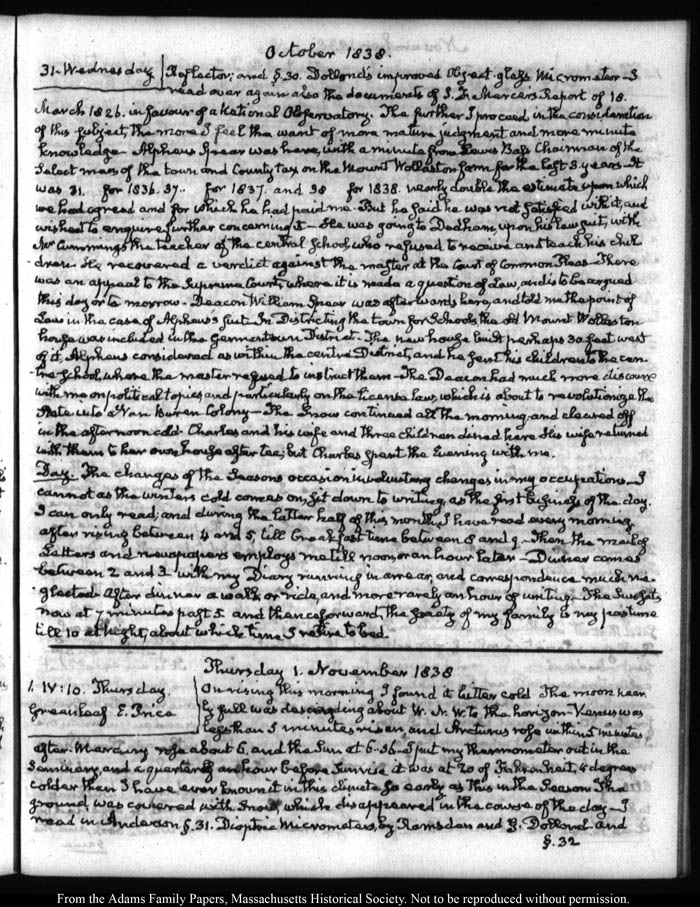 October 1838.
31. Wednesday
Reflector; and §. 30. Dollond's improved Object-glass Micrometer — I
read over again also the documents of S. F. Mercer's Report of 18.
March 1826. in favour of a National Observatory. The further I proceed in the consideration
of this subject, the more I feel the want of more mature judgment and more minute
knowledge — Alpheus Spear was here, with a minute from Lewis Bass Chairman of the
Select men of the town and County tax on the Mount Wollaston farm for the last 3. years — It
was 31. for 1836. 37.. for 1837. and 38 for 1838. nearly double the estimate upon which
we had agreed and for which he had paid me. But he said he was not satisfied with it, and
wished to enquire further concerning it — He was going to Dedham, upon his law suit, with
Mr Cummings the teacher of the central School, who refused to receive and teach his chil-
dren. He recovered a verdict against the master at the Court of Common Pleas — There
was an appeal to the Supreme Court, where it is made a question of Law, and is to be argued
this day or to morrow — Deacon William Spear was afterwards here, and told me the point of
Law in the case of Alpheus's suit. In Districting the town for Schools, the old Mount Wollaston
house was included in the Germantown District — The new house built perhaps 30 feet west
of it, Alpheus considered as within the centre District, and he sent his children to the cen-
tre School, where the master refused to instruct them — The Deacon had much more discourse
with me on political topics and particularly on the license law, which is about to revolutionize the
State into a Van Buren Colony — The Snow continued all the morning and cleared off
in the afternoon cold. Charles and his wife and three children dined here. His wife returned
with them to her own house after tea; but Charles spent the Evening with me.
Day. The changes of the Seasons occasion involuntary changes in my occupations — I
cannot as the winter's cold comes on, set down to writing as the first business of the day.
I can only read, and during the latter half of this month, I have read every morning
after rising between 4 and 5, till breakfast time between 8 and 9 — Then the mail of
Letters and newspapers employs me till noon, or an hour later — Dinner comes
between 2 and 3 with my Diary running in arrear, and correspondence much ne-
glected. After dinner a walk or ride, and more rarely an hour of writing — The Sun sets
now at 7 minutes past 5 and thenceforward, the society of my family is my pastime
till 10 at night, about which time I retire to bed.
Thursday 1. November 1838
1. IV: 10. Thursday.
Greenleaf E. Price
On rising this morning I found it bitter cold. The moon near
ly full was descending about W. N. W. to the horizon — Venus was
less than 5 minutes risen, and Arcturus rose within 5 minutes
after. Mercury rose about 6, and the Sun at 6-36 — I put my thermometer out in the
Seminary, and a quarter of an hour before Sunrise it was at 20 of Fahrenheit, 4 degrees
colder than I have ever known it in this climate so early as this in the Season. The
ground was covered with Snow, which disappeared in the course of the day — I
read in Anderson §. 31. Dioptric Micrometers, by Ramsden and §. Dollond and
§. 32
From the Adams Family Papers, Massachusetts Historical Society. Not to be reproduced without permission.